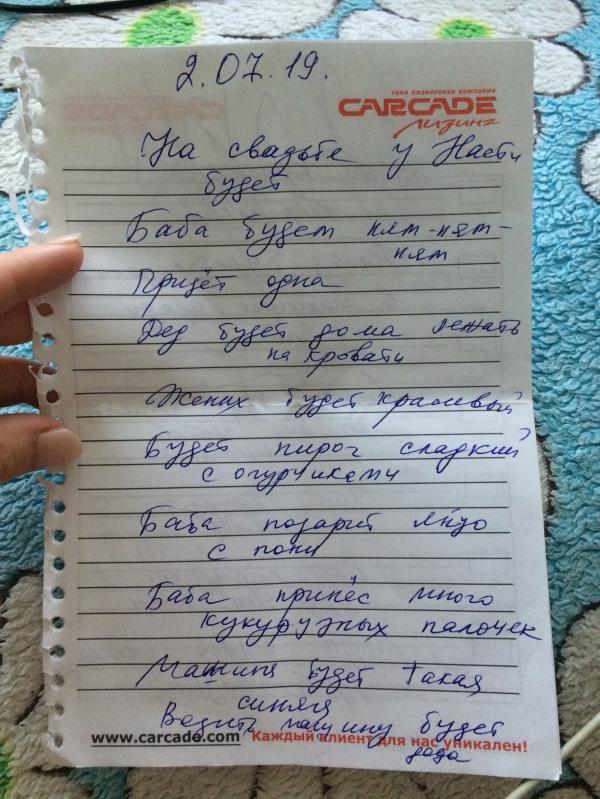 2.07.19.
твоя лизинговая компания
CARCADE
лизинг
На свадьбе у Насти
будет
Баба будет ням-ням-
ням
Придёт одна
Дед будет дома лежать
на кровати
Жених будет красивый
Будет пирог сладкий
с огурчиками
Баба подарит
с пони
Баба принёс много
кукурузных палочек
Машина будет такая
синяя
Водить машину будет
дода
www.carcade.com Каждый клиент для нас уникален!